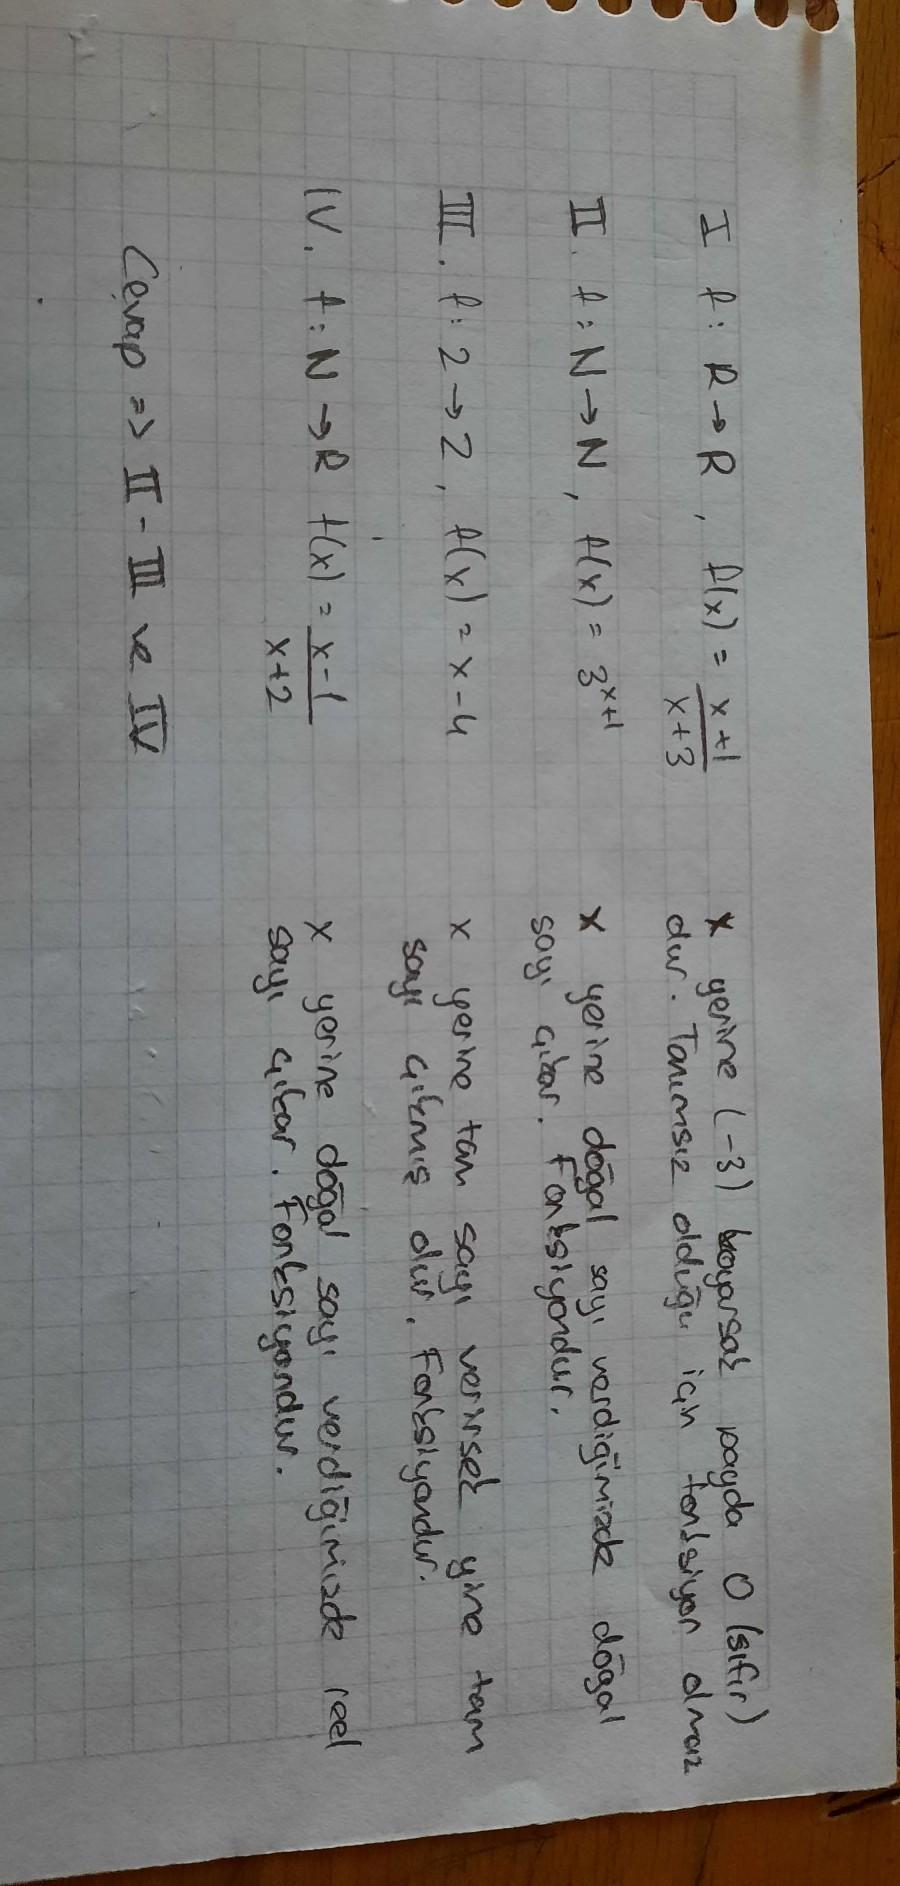 I f: R→R, f(x) = x+1 / x+3
x yerine (-3) koyarsak payda 0 (sıfır)
dur. Tanımsız olduğu için fonksiyon olmaz
II. f: N→N, f(x) = 3^x+1
x yerine doğal sayı verdiğimizde doğal
sayı çıkar. Fonksiyondur.
III. f: Z→Z, f(x) = x-4
x yerine tam sayı verirsek yine tam
sayı çıkmış olur. Fonksiyondur.
IV. f: N→R f(x) = x-1 / x+2
x yerine doğal sayı verdiğimizde reel
sayı çıkar. Fonksiyondur.
Cevap => II - III ve IV